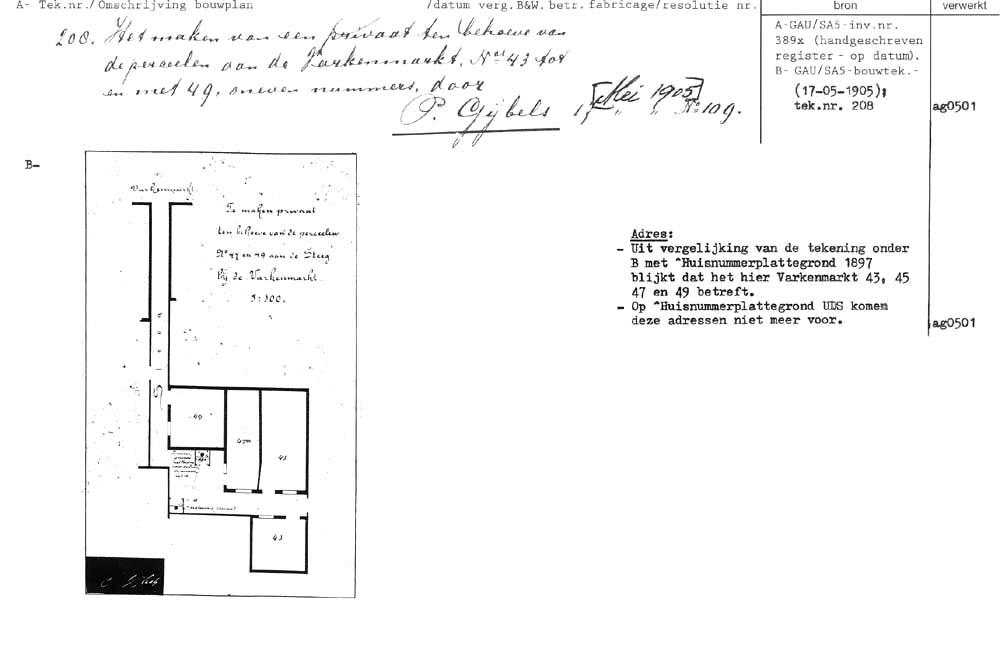 A- Tek.nr./Omschrijving bouwplan /datum verg.B&W. betr. fabricage/resolutie nr. bron verwerkt
208. Het maken van een privaat ten behoeve van
de perceelen aan de Varkenmarkt, Nos 43 tot
en met 49, oneven nummers, door
P. Gijbels 17 [Mei 1905] " " No 109.
A-GAU/SA5-inv.nr.
389x (handgeschreven
register - op datum).
B- GAU/SA5-bouwtek.-
(17-05-1905);
tek.nr. 208 ag0501
B-
Varkenmarkt.
Te maken privaat
ten behoeve van de perceelen
No 47 en 49 aan de Steeg
bij de Varkenmarkt.
1:100.
Steeg
49
45
43
Adres:
- Uit vergelijking van de tekening onder
B met ^Huisnummerplattegrond 1897
blijkt dat het hier Varkenmarkt 43, 45
47 en 49 betreft.
- Op ^Huisnummerplattegrond UDS komen
deze adressen niet meer voor.
ag0501